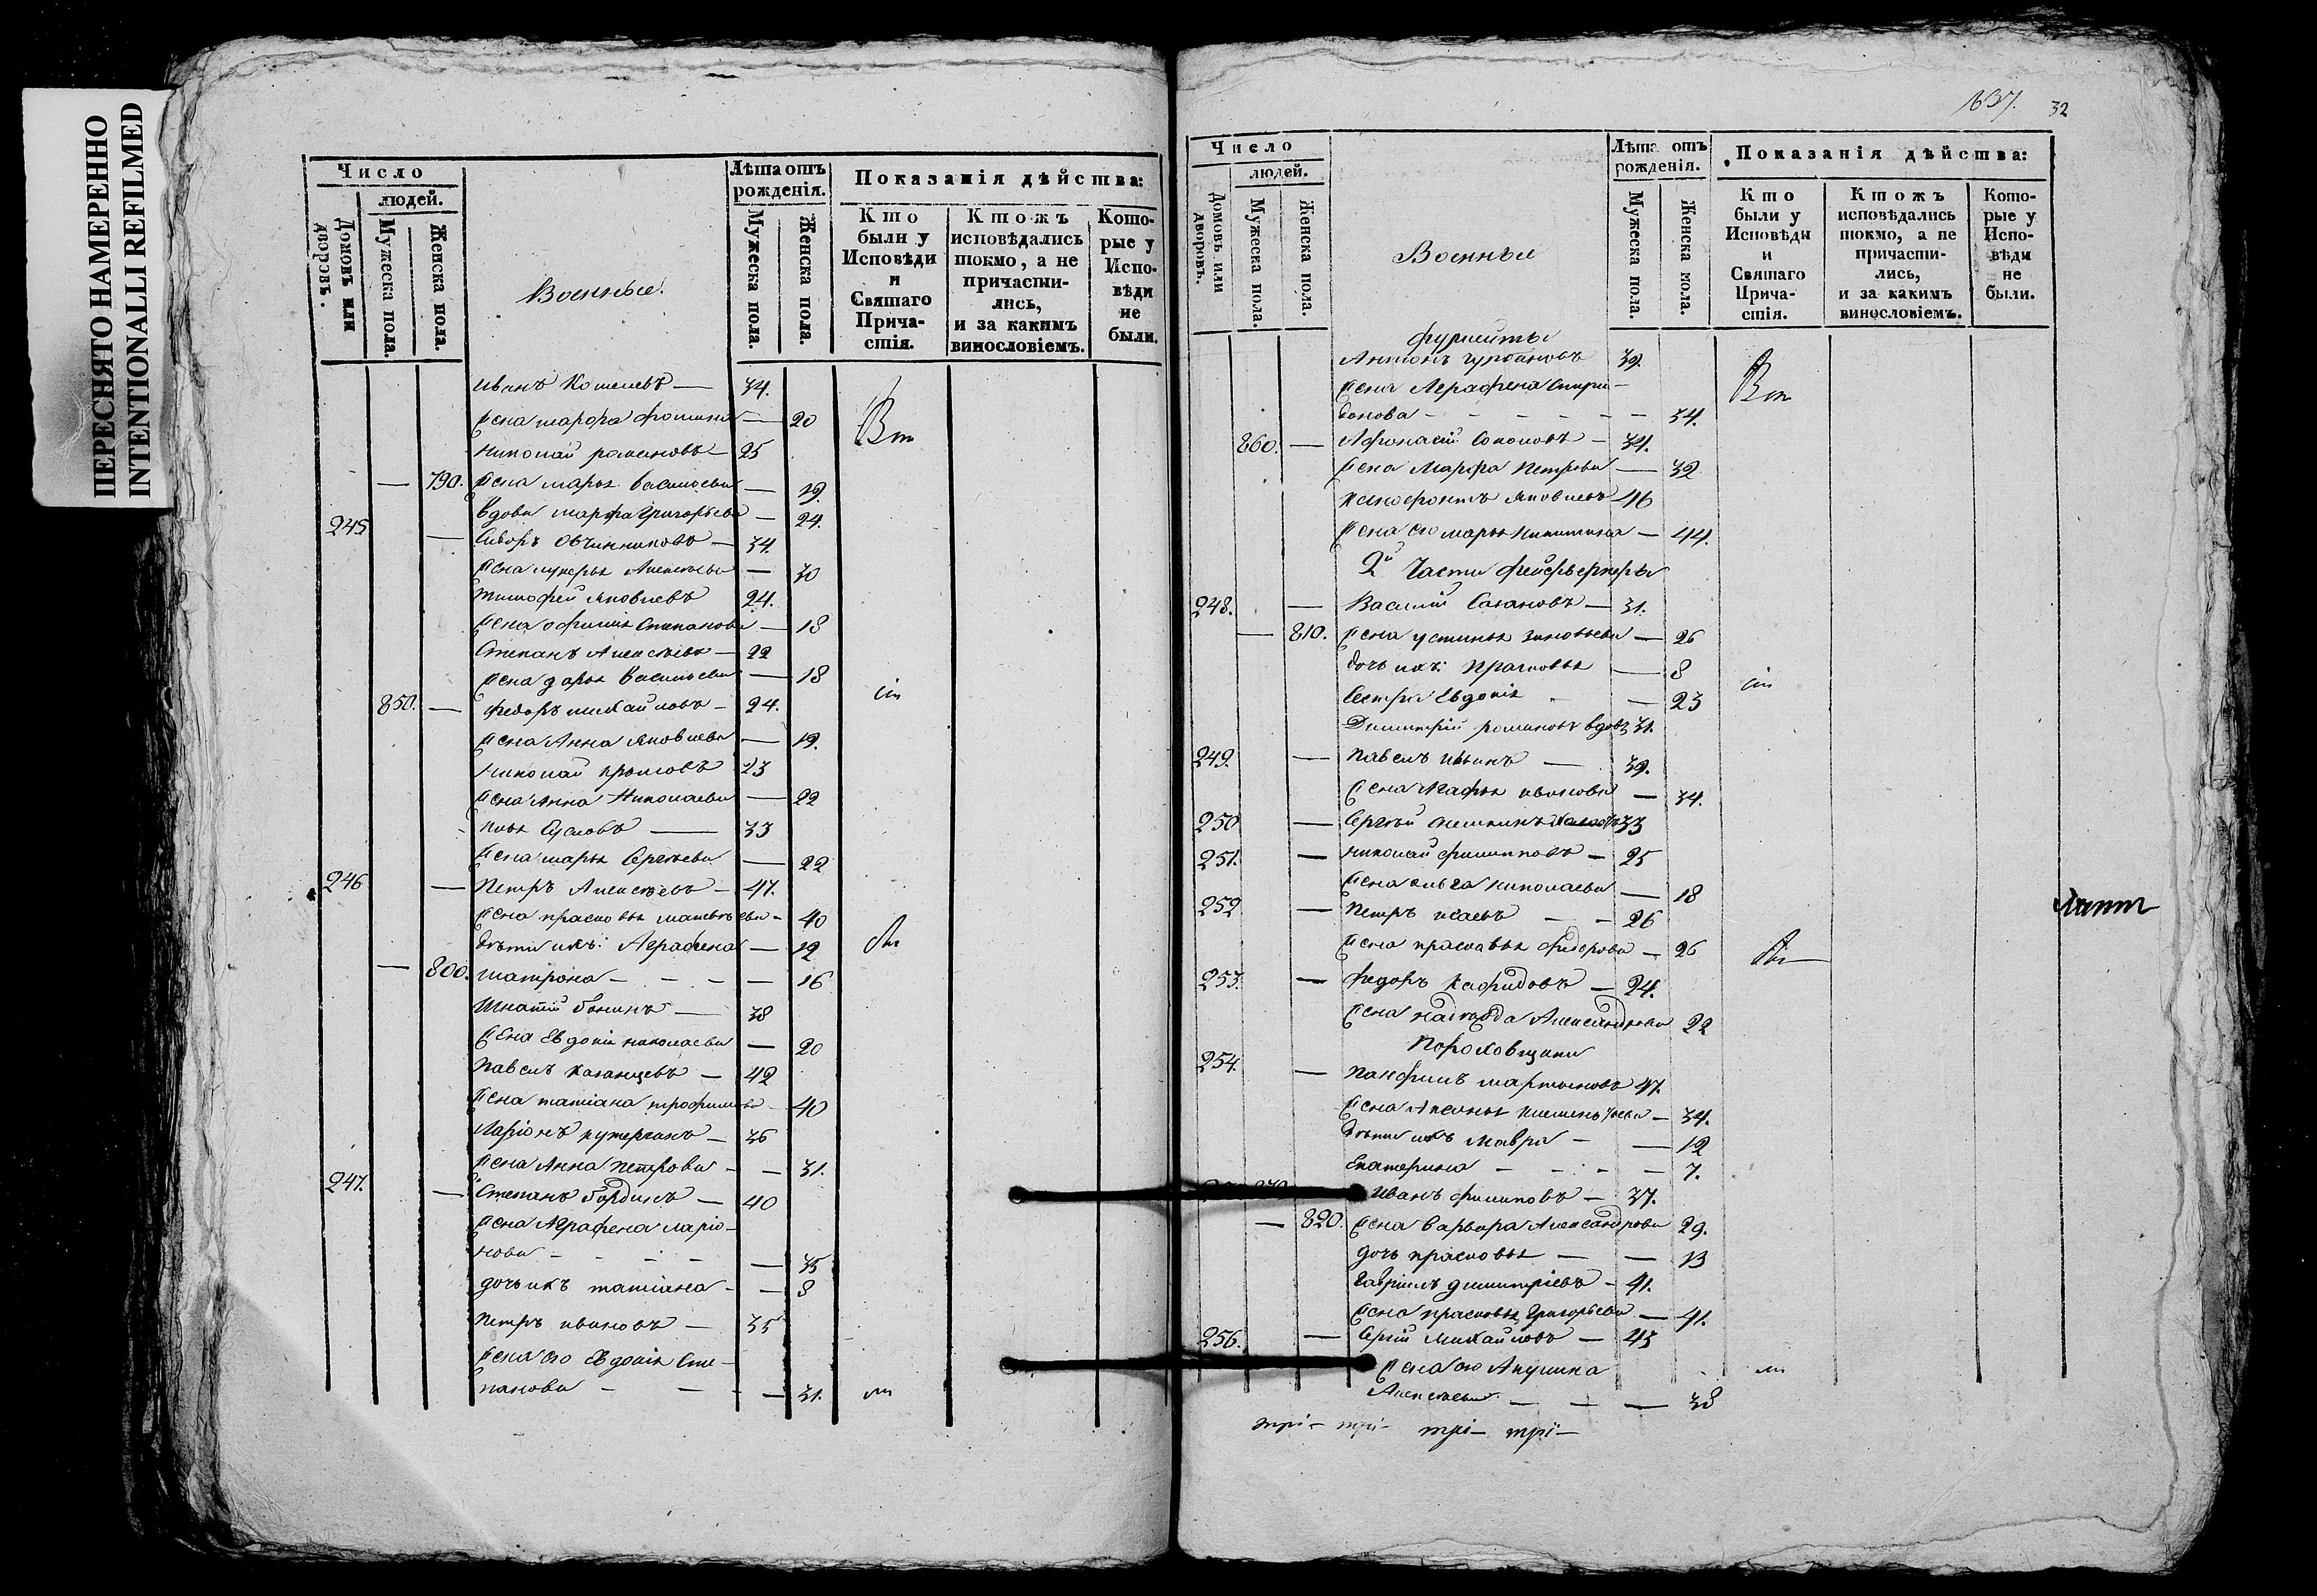 ПЕРЕСНЯТО НАМЕРЕННО
INTENTIONALLI REFILMED
Число
людей.
Домовъ или дворовъ.
Мужеска пола.
Женска пола.
Военные.
Лѣта отъ рожденія.
Мужеска пола.
Женска пола.
Показанія дѣйства:
Кто были у Исповѣди и Святаго Прича-стія.
Ктожъ исповѣдались токмо, а не причасти-лись, и за какимъ винословіемъ.
Кото-рые у Испо-вѣди не были.
Иванъ Кошелевъ — 34.
жена марфа фомина — 20
Николай романовъ — 25
— 790. жена марья васильева — 19.
вдова марфа Григорьева — 24.
245 — Сидоръ Овчинниковъ — 34.
жена лукерья Алексѣева — 30
тимофей яковлевъ 24.
жена офимія Степанова — 18
Степанъ Алексѣевъ — 22
жена дарья васильева — 18
850. — федоръ михайловъ — 24.
жена Анна яковлева — 19.
николай 23
жена Анна Николаева — 22
Сусловъ — 33
жена марья Сергѣева — 22
246 — Петръ Алексѣевъ — 47.
жена прасковья матвѣева — 40
дѣти ихъ: Аграфена — 12
— 800. матрона — — — 16
Игнатій — 38
жена Евдокія николаева — 20
Павелъ Казанцевъ — 42
жена татіана трофимова 40
Ларіонъ — 36
жена Анна петрова — — 31.
247. — Степанъ — 40
жена Аграфена ларіо-
нова — — — 35
дочь ихъ татіана — — 8
Петръ ивановъ — 35
жена его Евдокія Сте-
панова — — — 31.
1637. 32
Число
людей.
Домовъ или дворовъ.
Мужеска пола.
Женска пола.
Военные
Лѣта отъ рожденія.
Мужеска пола.
Женска пола.
Показанія дѣйства:
Кто были у Исповѣди и Святаго Прича-стія.
Ктожъ исповѣдались токмо, а не причасти-лись, и за какимъ винословіемъ.
Кото-рые у Испо-вѣди не были.
Антонъ 39.
жена Аграфена Спири-
донова — — — — — 34.
860. — Афонасій Соколовъ — 34.
жена Марфа Петрова — 32
Ксенофонтъ яковлевъ 46
жена его марья никитина — 44.
2й Части фейерверкеры
248. — Василій Сазановъ — 31.
— 810. жена устинья зиновьева — 26
дочь ихъ: Прасковья — 8
Сестра Евдокія — 23
Димитрій романовъ вдовъ 31.
249. — Павелъ — 39.
жена Агафья иванова — 34.
250 — Сергѣй 33
251. — николай филипповъ — 25
жена ольга николаева — 18
252 — Петръ исаевъ — — 26
жена прасковья федорова — 26
253. — федоръ — 24.
жена надежда Александрова 22
Пороховщики
254. — Панфилъ мартыновъ 47.
жена Аксинья — 34.
дѣти ихъ Мавра — — 12
Екатерина — — — 7.
Иванъ филиповъ — 37.
— 820. жена варвара Александрова 29.
дочь прасковья — — 13
Гаврилъ димитріевъ — 41.
жена прасковья Григорьева — 41.
256. — Сергій Михайловъ — 43
жена его Акулина
Алексѣева — — — 38
три— три— три— три—